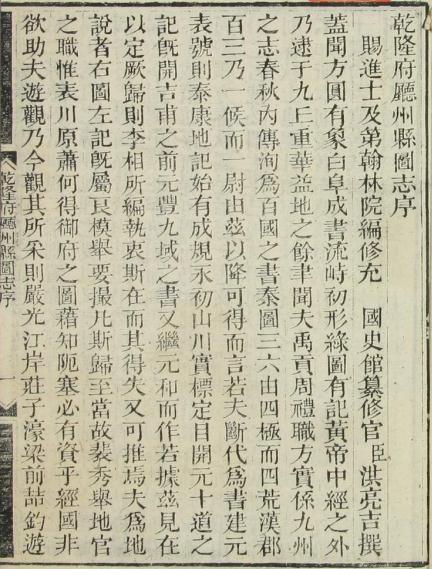 乾隆府廳州縣圖志序
賜進士及第翰林院編修充　國史館纂修官臣洪亮吉撰
蓋聞方圓有象白阜成書流峙初形綠圖有記黃帝中經之外
乃逮于九丘重華益地之餘聿聞夫禹貢周禮職方實係九州
之志春秋內傳洵爲百國之書秦圖三六由四極而四荒漢郡
百三乃一候而一尉由茲以降可得而言若夫斷代爲書建元
表號則泰康地記始有成規永初山川實標定目開元十道之
記旣開吉甫之前元豐九域之書又繼元和而作若據茲見在
以定厥歸則李相所編執衷斯在而其得失又可推焉夫爲地
說者右圖左記旣屬良模舉要撮凡斯歸至當故裴秀舉地官
之職惟表川原蕭何得御府之圖藉知阨塞必有資乎經國非
欲助夫遊觀乃今觀其所采則嚴光江岸莊子濠梁前喆釣遊
乾隆府廳州縣圖志序
一